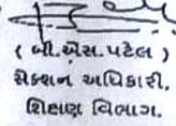 ( બી.એસ.પટેલ )
સેક્શન અધિકારી,
શિક્ષણ વિભાગ.